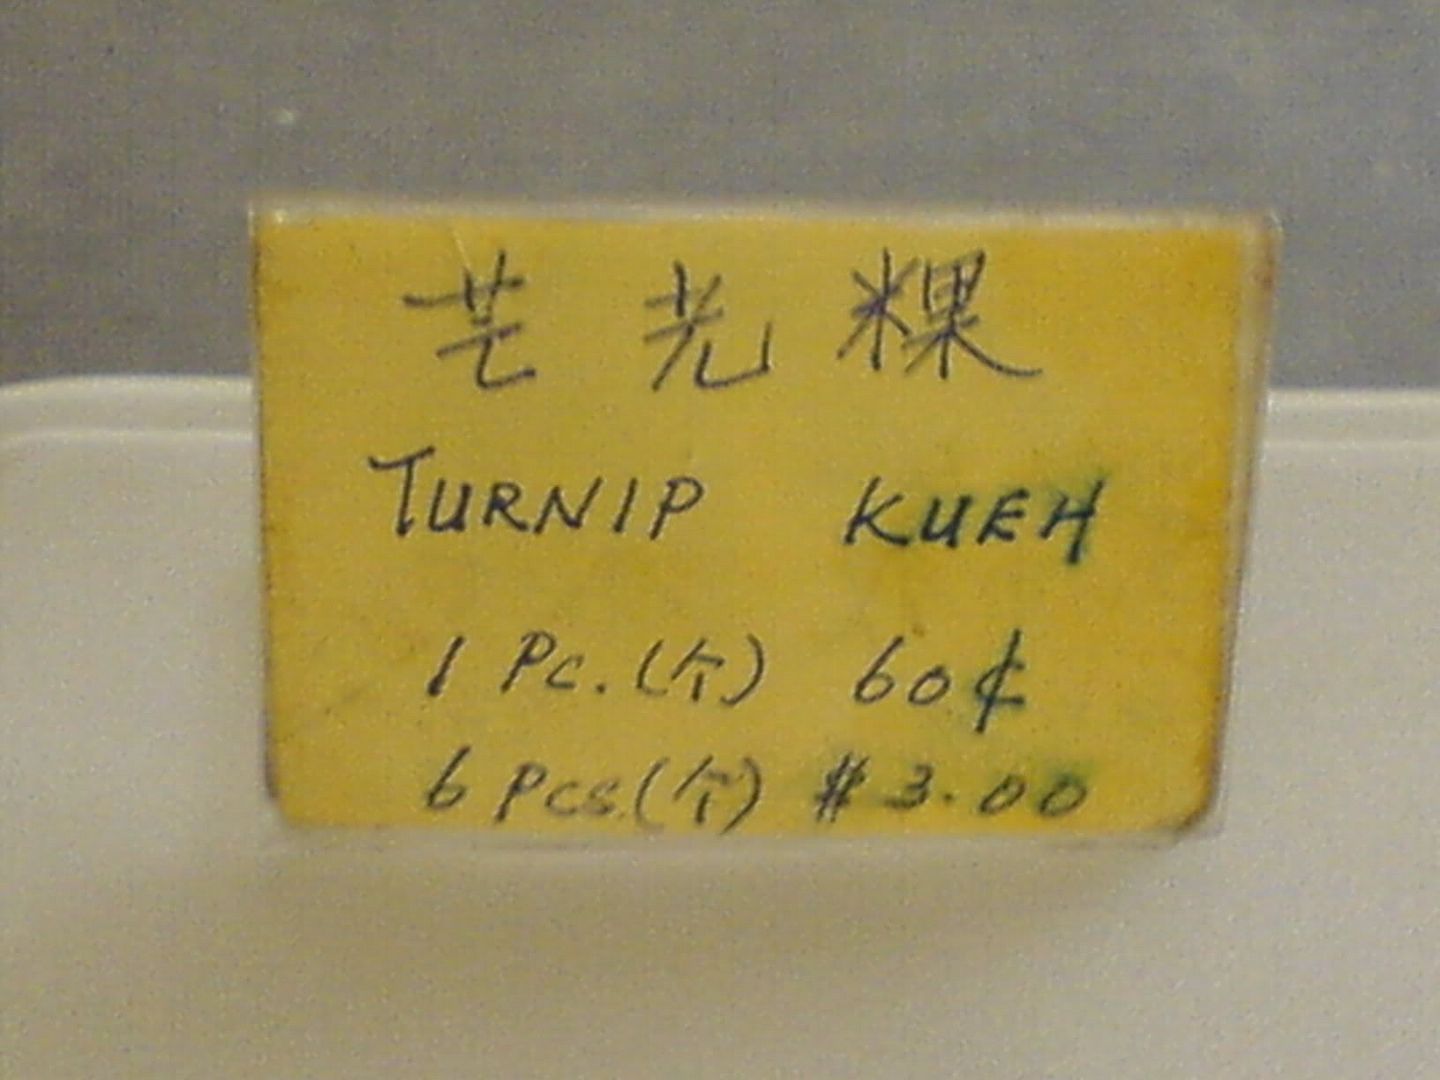 芒光粿
TURNIP KUEH
1 Pc.(个) 60¢
6 Pcs.(个) $3.00